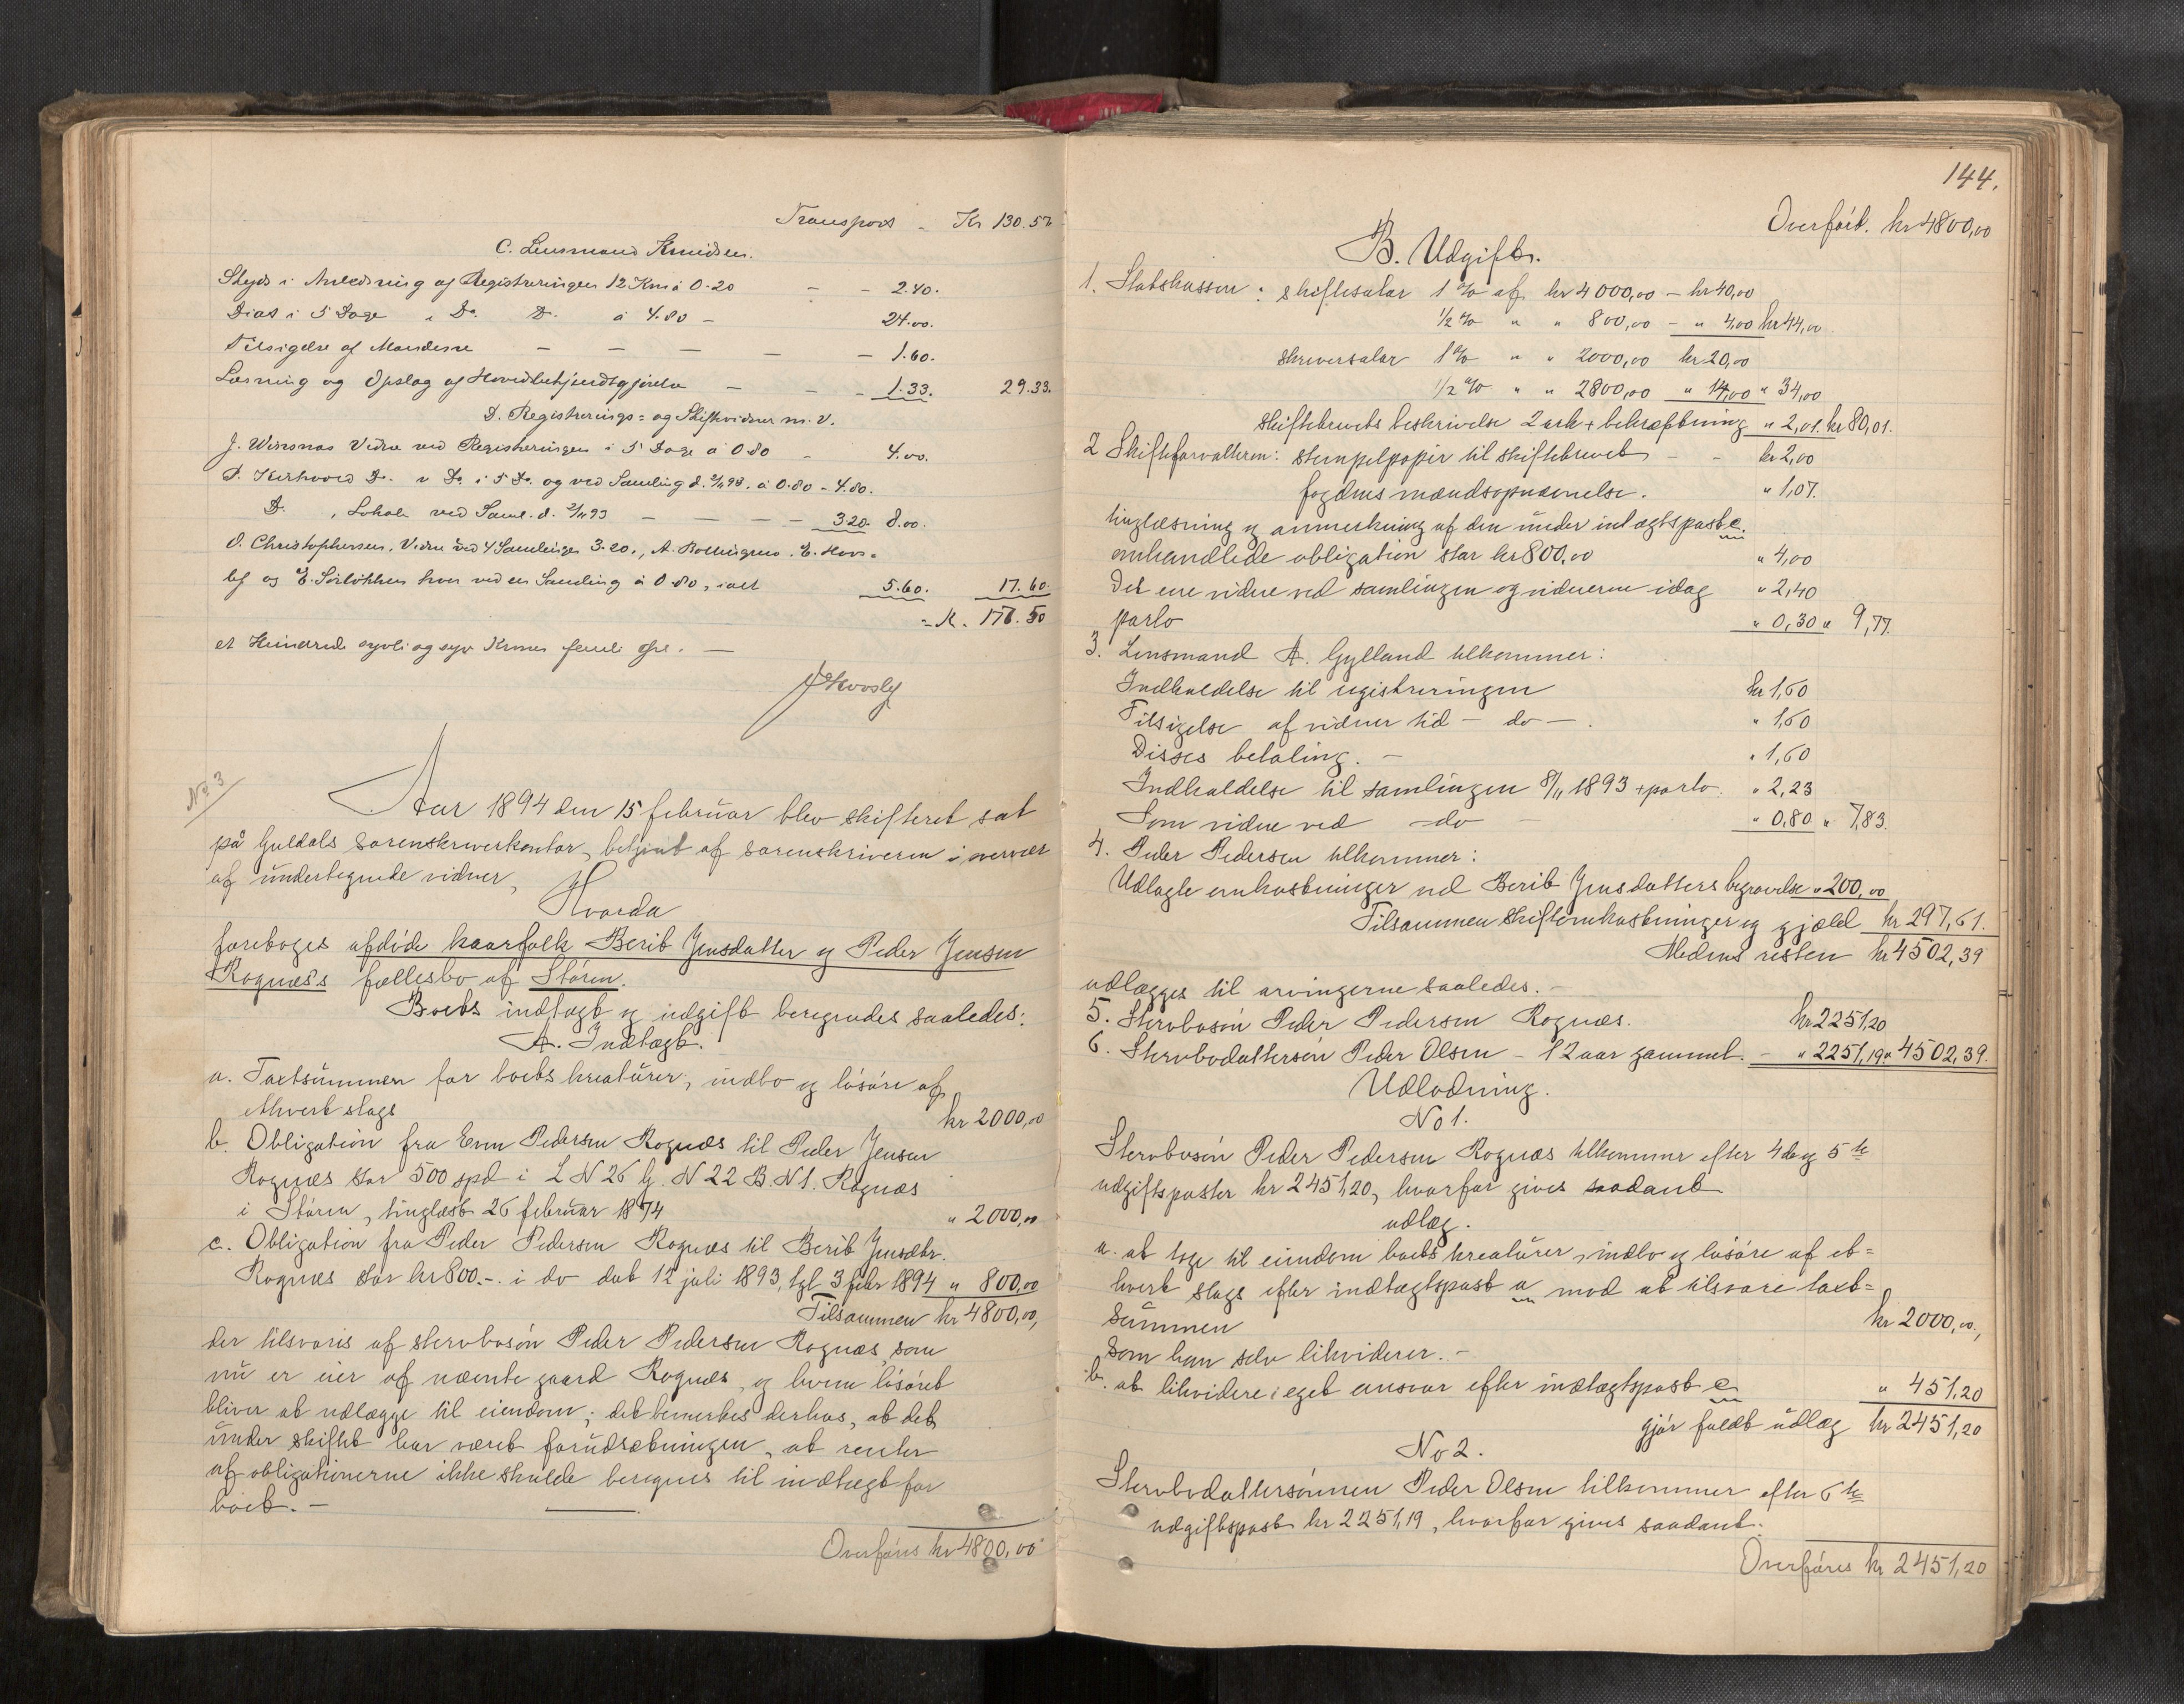 Transport - Kr 130.57
C. Lensmand Knudsen.
Skyds i Anledning af Registreringen 12 Km à 0.20 - - 2.40.
Diæt i 5 Dage i Do. Do. à 4.80 - 24.00.
Tilsigelse af Mændene - - - - - 1.60.
Læsning og Opslag af Hovedbekjendtgjørelse - - - 1.33. 29.33.
D. Registrerings- og Skiftevidner m. v.
J. Winsnæs Vidne ved Registreringen i 5 Dage à 0.80 - 4.00.
P. Kirkvold Do. v Do. i 5 Do. og ved Samling d. 2/11 93. à 0.80 - 4.80.
Do. , Lokale ved Saml. d. 2/11 93 - - - - 3.20. 8.00.
O. Christophersen, Vidne ved 4 Samlinger 3.20., A. , E. Hovs-
løf og E. Sørløkken hver ved en Samling à 0.80, ialt 5.60. 17.60.
= Kr. 177.50
et Hundrede syvti og syv Kroner femti Øre. -
JHovsløf
No 3
Aar 1894 den 15 februar blev skifteret sat
på Guldals sorenskriverkontor, betjent af sorenskriveren i overvær
af undertegnede vidner,
Hvorda
foretoges afdøde kaarfolk Berit Jensdatter og Peder Jensen
Rognæs's fællesbo af Støren.
Boets indtægt og udgift beregnedes saaledes:
A. Indtægt.
a. Taxtsummen for boets kreaturer, indbo og løsøre af
ethvert slags kr 2000,00
b. Obligation fra Enn Pedersen Rognæs til Peder Jensen
Rognæs stor 500 spd i L N 26 G. N 22 B. N 1. Rognæs
i Støren, tinglæst 26 februar 1874 " 2000,00
c. Obligation fra Peder Pedersen Rognæs til Berit Jensdtr.
Rognæs stor kr 800.-. i do dat 12 juli 1893, tgl 3 febr 1894 " 800,00
Tilsammen kr 4800,00,
der tilsvares af stervbosøn Peder Pedersen Rognæs, som
nu er eier af nævnte gaard Rognæs, og hvem løsøret
bliver at udlægge til eiendom; det bemerkes derhos, at det
under skiftet har været forudsætningen, at renter
af obligationerne ikke skulde beregnes til indtægt for
boet. -
Overføres kr 4800,00
144.
Overført. kr 4800,00
B. Udgifter.
1. Statskassen: skiftesalær 1 % af kr 4000,00 - kr 40,00
1/2 % " " 800,00 - " 4,00 kr 44,00
skriversalær 1 % " " 2000,00 kr 20,00
1/2 % " " 2800,00 " 14,00 " 34,00
skiftebrevets beskrivelse 2 ark + bekræftning " 2,01. kr 80,01.
2 Skifteforvalteren: stempelpapir til skiftebrevet - - kr 2,00
fogdens mændsopnævnelse. " 1,07.
tinglæsning og anmerkning af den under indtægtspost c.
omhandlede obligation stor kr 800,00 " 4,00
det ene vidne ved samlingen og vidnerne idag " 2,40
porto " 0,30 " 9,77.
3. Lensmand A. Gylland tilkommer:
Indkaldelse til registreringen kr 1,60
Tilsigelse af vidner tid - do - . " 1,60
Disses betaling. - " 1,60
Indkaldelse til samlingen 8/11 1893 + porto. " 2,23
Som vidne ved - do - " 0,80 " 7,83.
4. Peder Pedersen tilkommer:
Udlagte omkostninger ved Berit Jensdatters begravelse " 200,00
Tilsammen skifteomkostninger og gjæld kr 297,61.
Medens resten kr 4502,39
udlægges til arvingerne saaledes. -
5. Stervbosøn Peder Pedersen Rognæs. kr 2251,20
6. Stervbodattersøn Peder Olsen - 12 aar gammel. - " 2251,19 " 4502,39.
Udlodning.
No 1.
Stervbosøn Peder Pedersen Rognæs tilkommer efter 4de og 5te
udgiftsposter kr 2451,20, hvorfor gives saadant
udlæg.
a. at tage til eiendom boets kreaturer, indbo og løsøre af et-
hvert slags efter indtægtspost a mod at tilsvare taxt-
summen kr 2000,00,
som han selv likviderer. -
b. at likvidere i eget ansvar efter indtægtspost c " 451,20
gjør fuldt udlæg kr 2451,20
No 2.
Stervbodattersønnen Peder Olsen tilkommer efter 6te
udgiftspost kr 2251,19, hvorfor gives saadant.
Overføres kr 2451,20